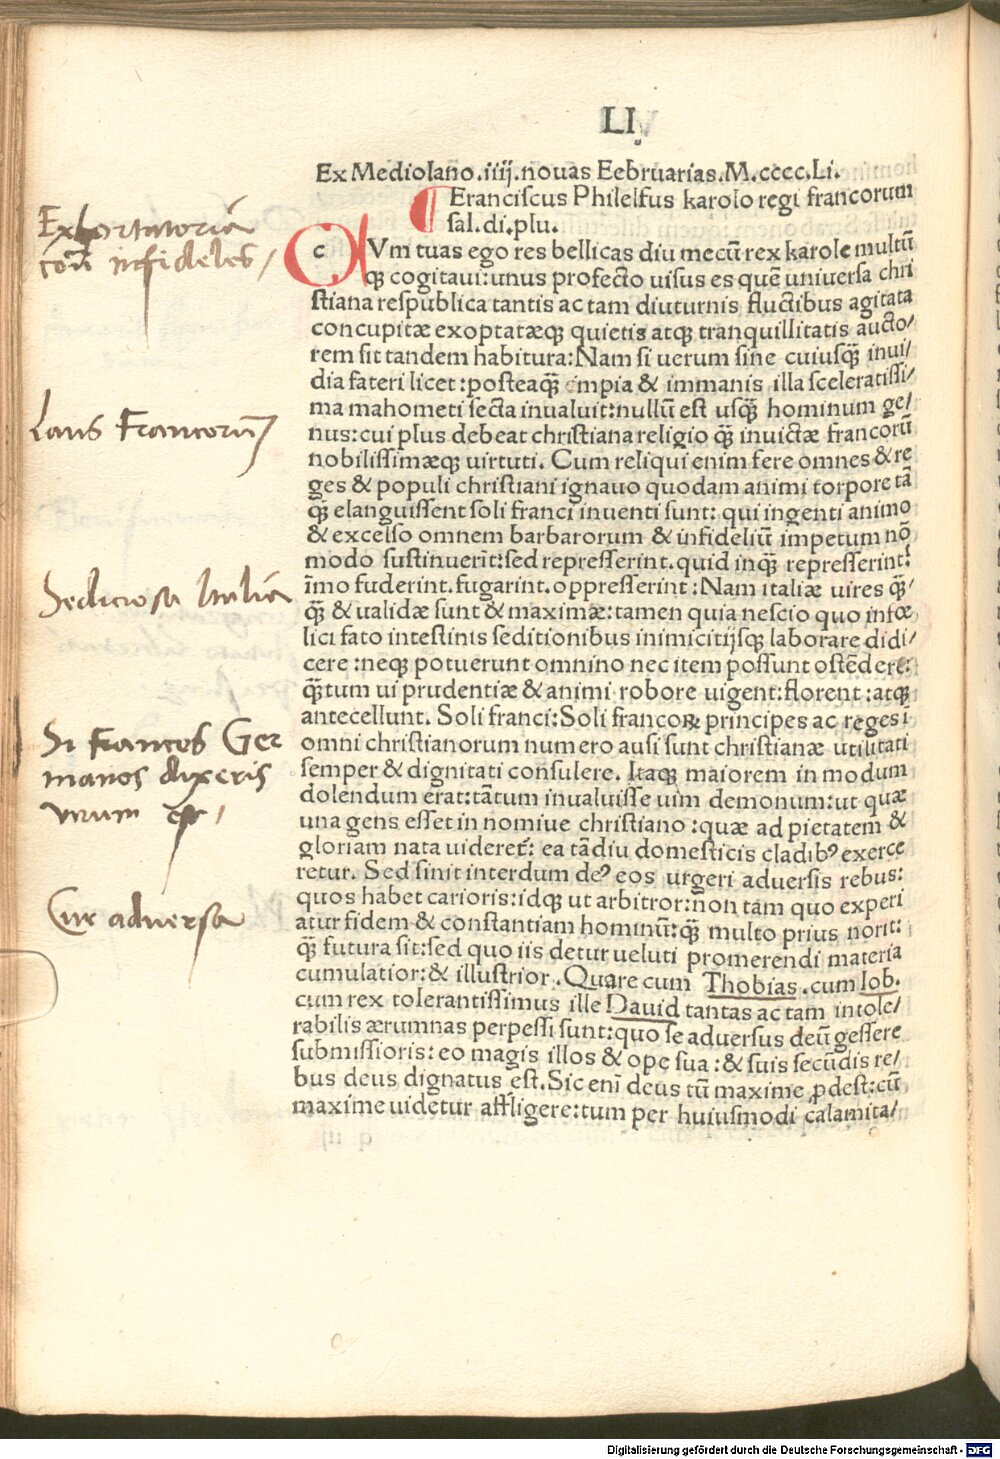 LI
Ex Mediolano.iiij.nouas Eebruarias.M.cccc.Li.
Eranciscus Philelfus karolo regi francorum
sal.di.plu.
c Vm tuas ego res bellicas diu mecū rex karole multū
qꝫ cogitaui:unus profecto uisus es quē uniuersa chri
stiana respublica tantis ac tam diuturnis fluctibus agitata
concupitæ exoptatæqꝫ quietis atqꝫ tranquillitatis aucto/
rem sit tandem habitura:Nam si uerum sine cuiusq̄ꝫ inui/
dia fateri licet:posteaq̄ꝫ impia & immanis illa sceleratissi/
ma mahometi secta inualuit:nullū est usq̄ꝫ hominum ge/
nus:cui plus debeat christiana religio q̄ꝫ inuictæ francorū
nobilissimæqꝫ uirtuti. Cum reliqui enim fere omnes & re
ges & populi christiani ignauo quodam animi torpore tā
qꝫ elanguissent soli franci inuenti sunt: qui ingenti animo
& excelso omnem barbarorum & infideliū impetum nō
modo sustinuerīt:sed represserint.quid inq̄ꝫ represserint:
īmo fuderint.fugarint.oppresserint:Nam italiæ uires q̄ꝫ/
q̄ꝫ & ualidæ sunt & maximæ:tamen quia nescio quo infœ
lici fato intestinis seditionibus inimicitijsqꝫ laborare didi/
cere:neqꝫ potuerunt omnino nec item possunt ostēdere:
q̄ꝫtum ui prudentiæ & animi robore uigent:florent:atqꝫ
antecellunt. Soli franci:Soli francoꝝ principes ac reges i
omni christianorum numero ausi sunt christianæ utilitati
semper & dignitati consulere. Itaqꝫ maiorem in modum
dolendum erat:tātum inualuisse uim demonum:ut quæ
una gens esset in nomiue christiano:quæ ad pietatem &
gloriam nata uideret᷑: ea tādiu domesticis cladibꝰ exerce
retur. Sed sinit interdum deꝰ eos urgeri aduersis rebus:
quos habet cariores:idqꝫ ut arbitror:non tam quo experi
atur fidem & constantiam hominū:q̄ꝫ multo prius norit:
q̄ꝫ futura sit:sed quo iis detur ueluti promerendi materia
cumulatior:& illustrior. Quare cum Thobias.cum Iob.
cum rex tolerantissimus ille Dauid tantas ac tam intole/
rabilis ærumnas perpessi sunt:quo se aduersus deū gessere
submissioris:eo magis illos & ope sua:& suis secūdis re/
bus deus dignatus est.Sic enī deus tū maxime ꝓdest:cū
maxime uidetur affligere:tum per huiusmodi calamita/
Exhortatoriā
cōn infideles/
Laus Francorū
Sediciosa Italiā
Si Francos Ger
manos dixeris
uirum est /
Cur aduersa
Digitalisierung gefördert durch die Deutsche Forschungsgemeinschaft - DFG